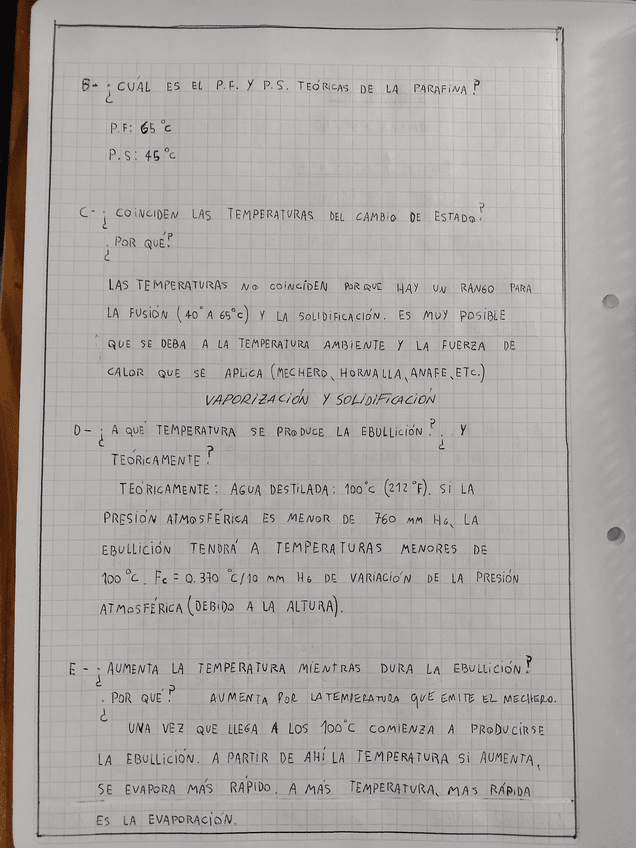 B- ¿CUÁL ES EL P.F. Y P.S. TEÓRICAS DE LA PARAFINA?
P.F: 65 °C
P.S: 45 °C
C- ¿COINCIDEN LAS TEMPERATURAS DEL CAMBIO DE ESTADO?
¿POR QUÉ?
LAS TEMPERATURAS NO COINCIDEN PORQUE HAY UN RANGO PARA
LA FUSIÓN (40° A 65°C) Y LA SOLIDIFICACIÓN. ES MUY POSIBLE
QUE SE DEBA A LA TEMPERATURA AMBIENTE Y LA FUERZA DE
CALOR QUE SE APLICA (MECHERO, HORNALLA, ANAFE, ETC.)
VAPORIZACIÓN Y SOLIDIFICACIÓN
D- ¿A QUÉ TEMPERATURA SE PRODUCE LA EBULLICIÓN? ¿Y
TEÓRICAMENTE?
TEÓRICAMENTE: AGUA DESTILADA: 100°C (212°F). SI LA
PRESIÓN ATMOSFÉRICA ES MENOR DE 760 MM HG, LA
EBULLICIÓN TENDRÁ A TEMPERATURAS MENORES DE
100°C. Fc = 0.370 °C/10 MM HG DE VARIACIÓN DE LA PRESIÓN
ATMOSFÉRICA (DEBIDO A LA ALTURA).
E- ¿AUMENTA LA TEMPERATURA MIENTRAS DURA LA EBULLICIÓN?
¿POR QUÉ? AUMENTA POR LA TEMPERATURA QUE EMITE EL MECHERO.
UNA VEZ QUE LLEGA A LOS 100°C COMIENZA A PRODUCIRSE
LA EBULLICIÓN. A PARTIR DE AHÍ LA TEMPERATURA SI AUMENTA,
SE EVAPORA MÁS RÁPIDO. A MÁS TEMPERATURA, MAS RÁPIDA
ES LA EVAPORACIÓN.